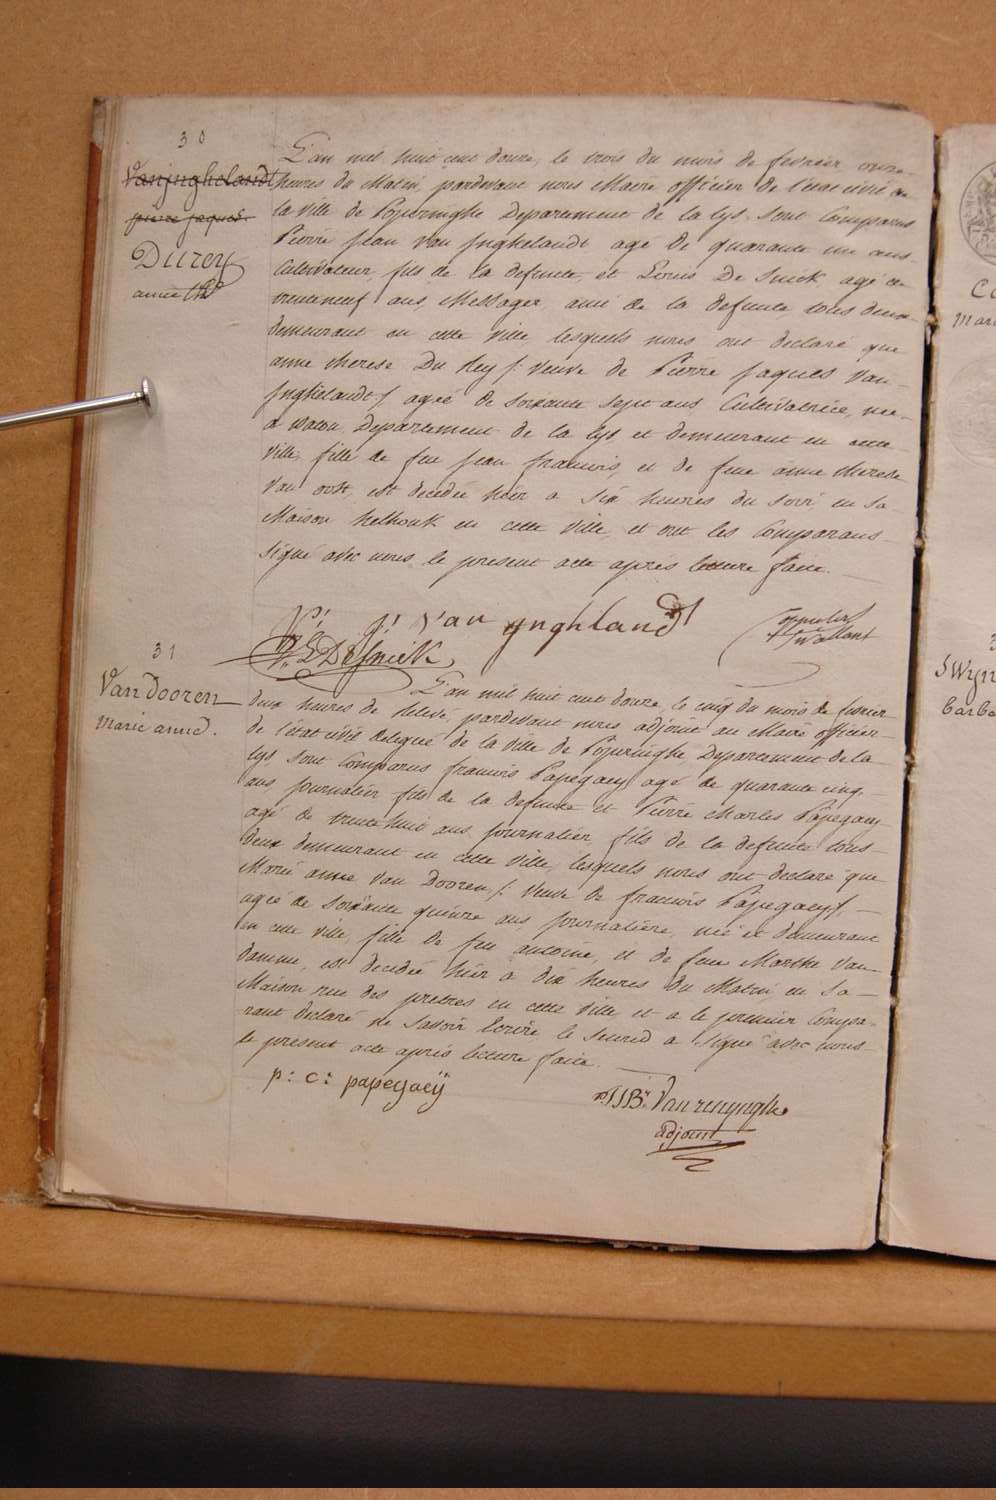 30
Vaninghelandt
pierre jaques
Durey
anne the
L'an mil huit cent douze, le trois du mois de fevrier onze
heures du Matin, pardevant nous Maire officier de l'état civil de
la ville de Poperinghe Departement de la Lys, sont Comparus
Pierre Jean Van Inghelandt agé de quarante un ans
Cultivateur, fils de la defunte, et Louis De Snick agé de
trenteneuf ans, Messager, ami de la defunte, tous deux
demeurant en cette ville, lesquels nous ont declaré que
anne therese Du Rey /: Veuve de Pierre Jaques Van-
Inghelandt / agée de soixante sept ans Cultivatrice, née
a Watou, Departement de la Lys et demeurant en cette
Ville, fille de feu jean francois, et de feue anne therese
Van oost, est decedée hier a six heures du soir en sa
Maison helhouk en cette Ville, et ont les Comparans
signé avec nous le present acte après lecture faite.
p: j: van ynghlandt
L DeSnick
31
Van Dooren
Marie anne.
L'an mil huit cent douze, le cinq du mois de fevrier
deux heures de relevé, pardevant nous adjoint au Maire officier
de l'état civil delegué de la ville de Poperinghe Departement de la
Lys sont Comparus francois Papegaey agé de quarante cinq
ans journalier fils de la defunte et Pierre Charles Papegaey
agé de trente huit ans, journalier, fils de la defunte tous
deux demeurant en cette Ville, lesquels nous ont declaré que
Marie anne Van Dooren /: Veuve de francois Papegaey /
agée de soixante quinze ans, journalière, née et demeurant
en cette Ville, fille de feu antoine, et de feue Marthe Van-
damme, est decedée hier à dix heures du Matin en sa
Maison rue des pretres en cette ville et a le premier Compa-
rant declaré ne savoir Ecrire, le second a signé avec nous
le present acte après lecture faite.
p: c: papegaeÿ
Van renynghe
adjoint